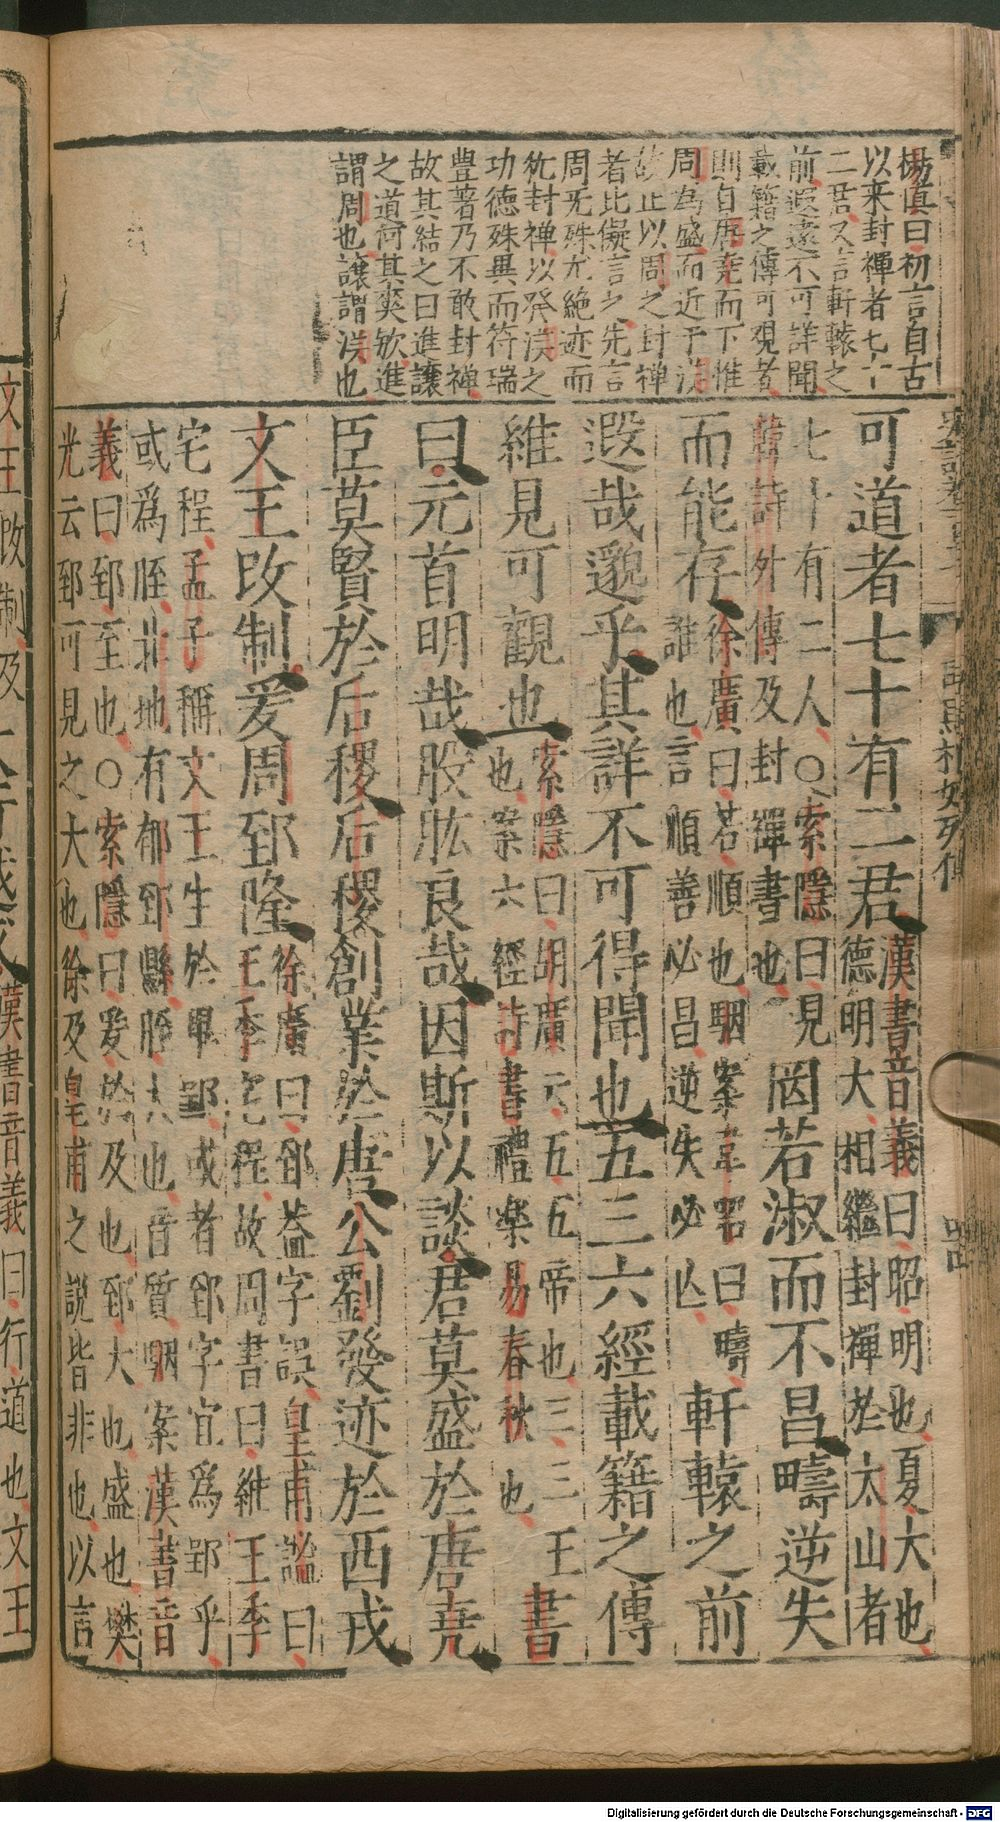 楊慎曰初言自古
以来封禪者七十
二君又言軒轅之
前遐遠不可詳聞
載籍之傳可观者
則自唐尭而下惟
周為盛而近于漢
故止以周之封禅
者比儗言之先言
周旡殊尤絶迹而
犹封禅以発漢之
功德殊異而符瑞
豊著乃不敢封禅
故其結之曰進讓
之道何其爽欤進
謂周也譲謂漢也
可道者七十有二君漢書音義曰昭明也夏大也
德明大相繼封禪於太山者
七十有二人○索隱曰見
韓詩外傳及封禪書也
罔若淑而不昌疇逆失
而能存徐廣曰若順也駰案韋昭曰疇
誰也言順善必昌逆失必亾
軒轅之前
遐哉邈乎其詳不可得聞也五三六經載籍之傳
維見可觀也索隱曰胡廣云五五帝也三三王
也案六經詩書禮樂易春秋也
書
曰元首明哉股肱良哉因斯以談君莫盛於唐尭
臣莫賢於后稷后稷創業於唐公劉發迹於西戎
文王改制爰周郅隆徐廣曰郅葢字誤皇甫謐曰
王季宅程故周書曰維王季
宅程孟子稱文王生於畢郢或者郅字宜爲郢乎
或爲胵北地有郁郅縣胵大也音質駰案漢書音
義曰郅至也○索隱曰爰於及也郅大也盛也樊
光云郅可見之大也徐及皇甫之說皆非也以言
文王改制及
漢書音義曰行道也文王
Digitalisierung gefördert durch die Deutsche Forschungsgemeinschaft - DFG